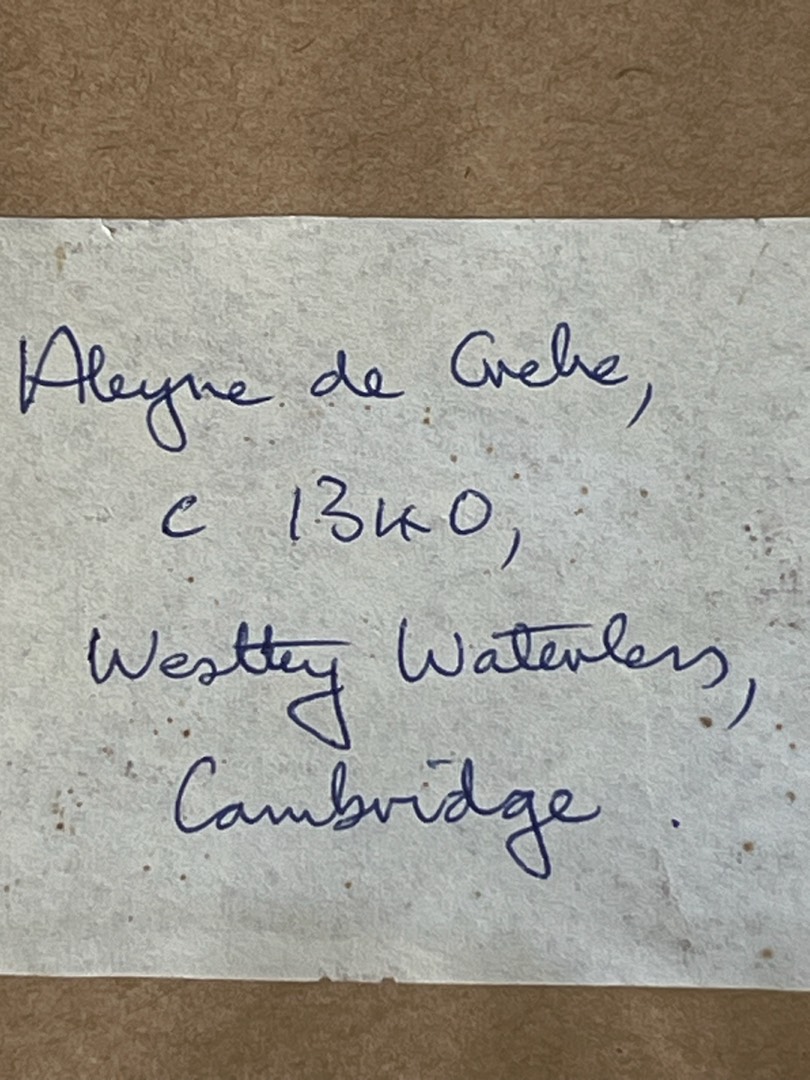 Aleyne de Creke,
c 1340,
Westley Waterless,
Cambridge.